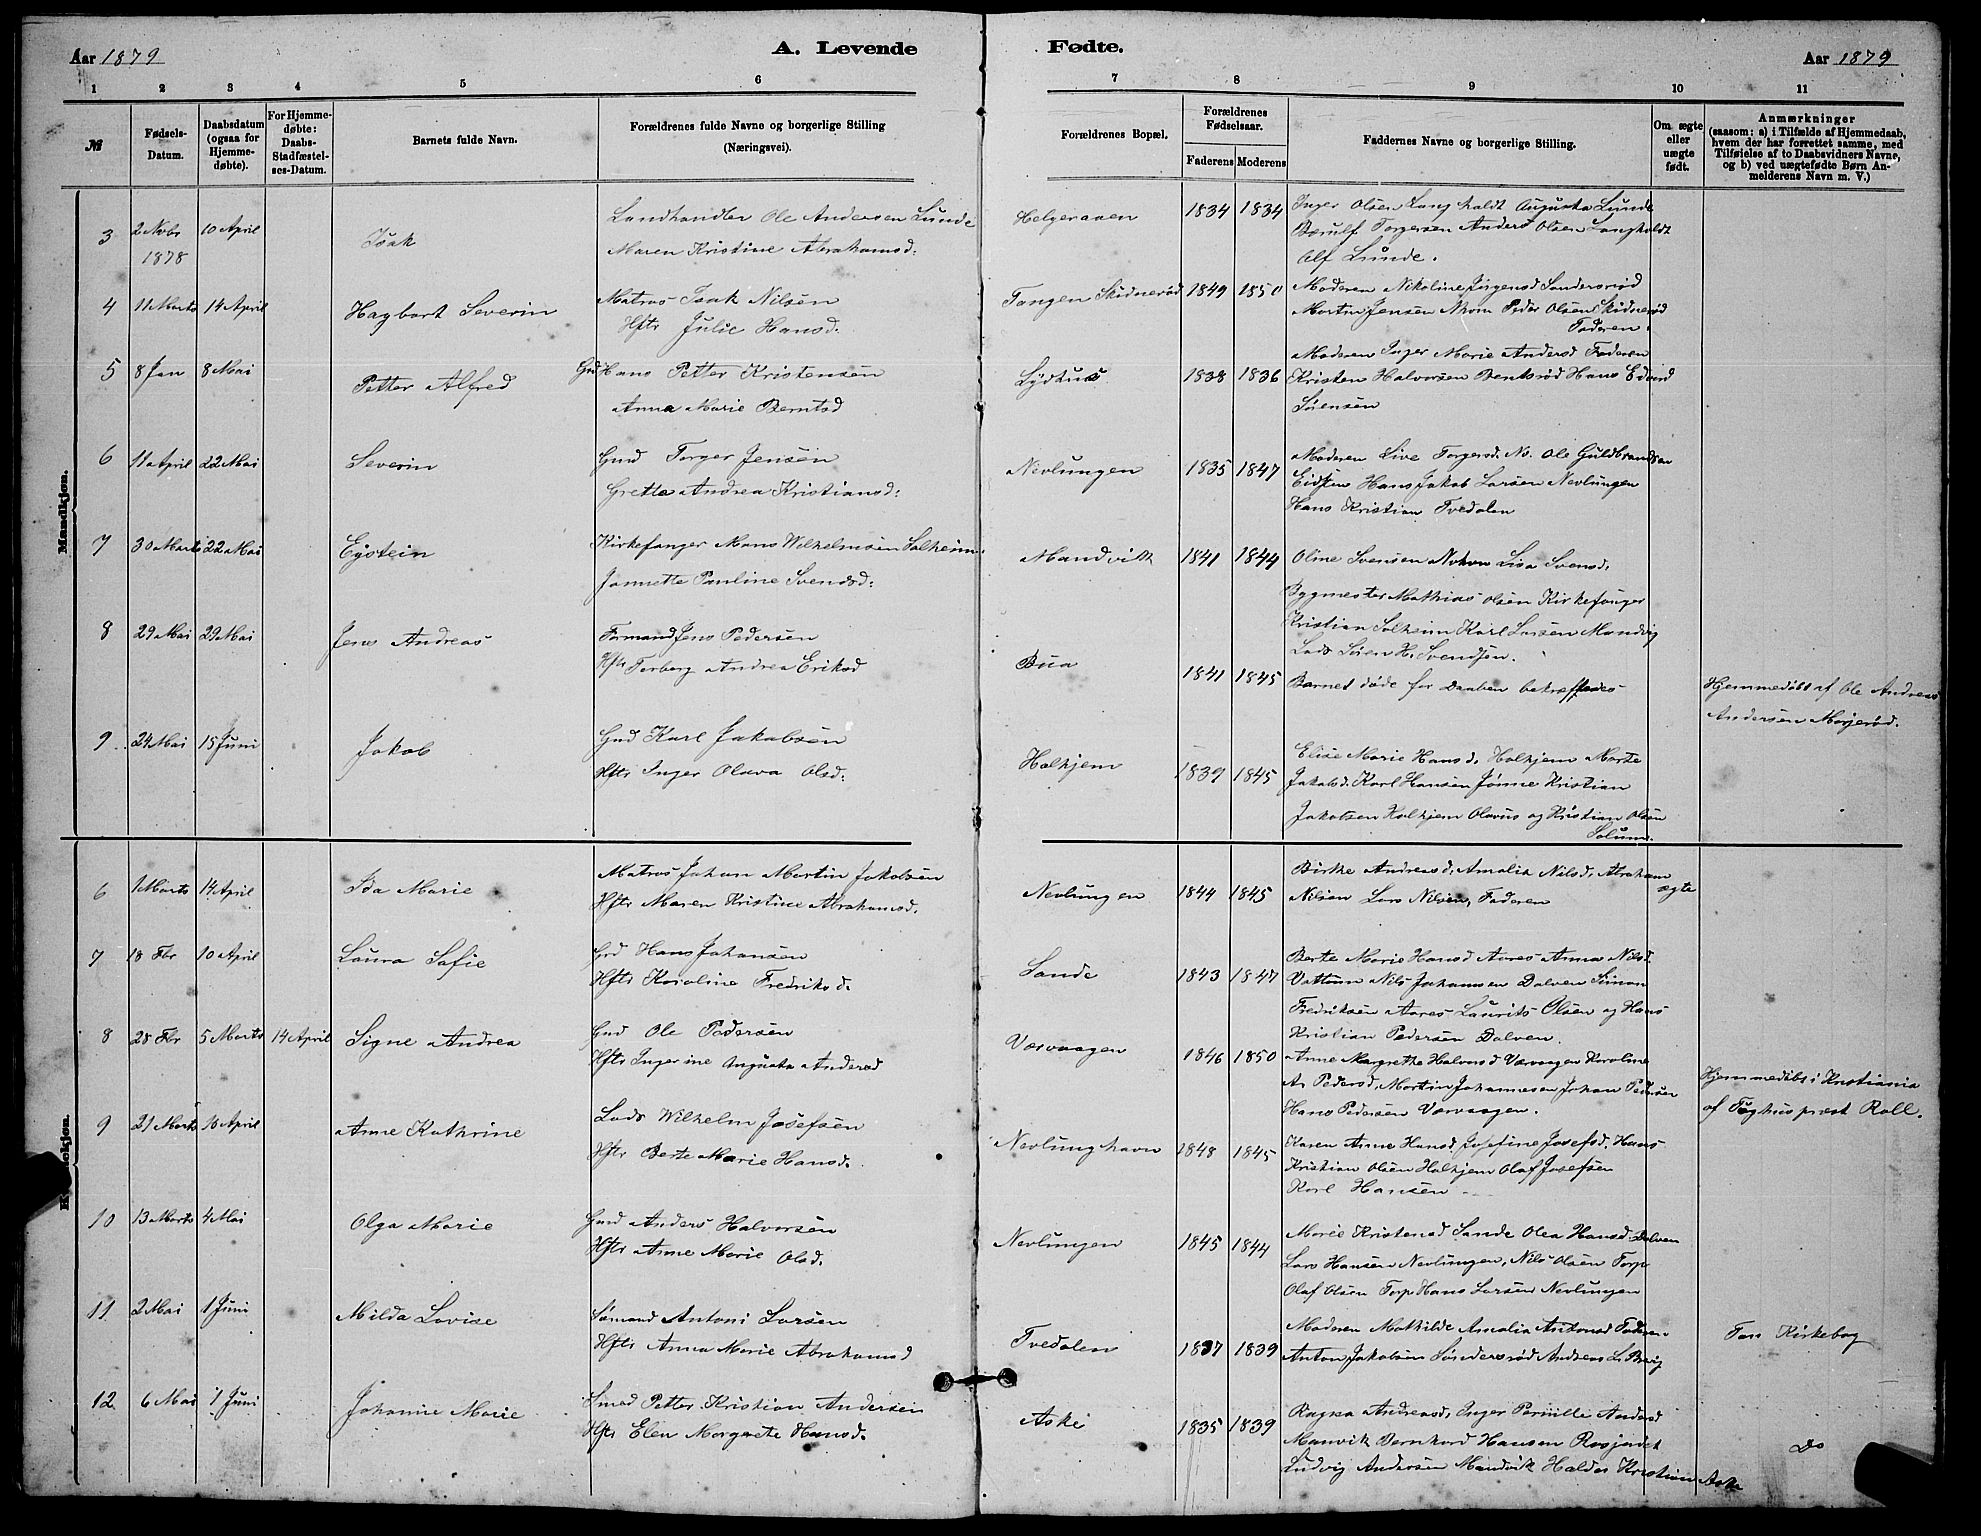 Aar 1879
A. Levende
Fødte.
Aar 1879
1 2 3 4 5 6 7 8 9 10 11
№
Fødsels-
Datum.
Daabsdatum
(ogsaa for
Hjemme-
døbte).
For Hjemme-
døbte:
Daabs-
Stadfæstel-
ses-Datum.
Barnets fulde Navn.
Forældrenes fulde Navne og borgerlige Stilling
(Næringsvei).
Forældrenes Bopæl.
Forældrenes
Fødselsaar.
Faderens Moderens
Faddernes Navne og borgerlige Stilling.
Om ægte
eller
uægte
født.
Anmærkninger
(saasom: a) i Tilfælde af Hjemmedaab,
hvem der har forrettet samme, med
Tilføielse af to Daabsvidners Navne,
og b) ved uægtefødte Børn An-
melderens Navn m. V.)
Mandkjøn.
3 2 Novbr 1878 10 April Isak
Landhandler Ole Andersen Lunde
Maren Kristine Abrahamsd:
Helgeraaen 1834 1834
Inger Olsen Langholdt Augusta Lunde
Berulf Torgersen Anders Olsen Langholdt
Olf Lunde.
4 11 Marts 14 April Hagbart Severin
Matros Isak Nilsen
Hstr Julie Hansd.
Tangen Skidnerød 1849 1850
Moderen Nikoline Jørgensd Sondersrød
Martin Jensen Peder Olsen Skidnerød
Faderen.
5 8 Jan 8 Mai Petter Alfred
Grd Hans Petter Kristensen
Anna Marie Berntsd
Lydhus 1838 1836
Moderen Inger Marie Andersd Faderen
Kristen Halvorsen Bentsrød Hans Edvard
Sørensen
6 11 April 22 Mai Severin
Gmd Torger Jensen
Grette Andrea Kristiansd:
Nevlungen 1835 1847
Moderen Live Torgersd. No. Ole Guldbrandsen
Eidsten Hans Jakob Larsen Nevlungen
Hans Kristian Tvedalen
7 30 Marts 22 Mai Eystein
Kirkesanger Mons Wilhelmsen Solheim
Jannette Pauline Svendsd:
Mandvik 1841 1844
Oline Svensen Lisa Svensd.
Bygmester Mathias Olsen Kirkesanger
Kristian Solheim Karl Larsen Mandvig
Lods Søren H. Svendsen.
8 29 Mai 29 Mai Jens Andreas
Formand Jens Pedersen
Hstr Torberg Andrea Eriksd
Bua 1841 1845
Barnet døde før Daaben bekræftedes
Hjemmedøbt af Ole Andreas
Andersen Mørjerød.
9 24 Mai 15 Juni Jakob
Gmd Karl Jakobsen
Hstr Inger Olava Olsd:
Holkjem 1839 1845
Elise Marie Hansd. Holkjem Marte
Jakobsd. Karl Hansen Jønne Kristian
Jakobsen Holkjem Olavus og Kristian Olsen
Solum.
6 1 Marts 14 April Ida Marie
Matros Johan Martin Jakobsen
Hstr Maren Kristine Abrahamsd.
Nevlungen 1844 1845
Birthe Andreasd, Amalia Nilsd, Abraham
Nilsen Lars Nilsen, Faderen
ægte
7 18 Fbr 10 April Laura Sofie
Grd Hans Johansen
Hstr Karoline Fredriksd.
Sande 1843 1847
Berte Marie Hansd Aares Anna Nilsd.
Vattun Nils Johannsen Dolven Simon
Fredriksen Aares Laurits Olsen og Hans
Kristian Pedersen Dolven.
8 28 Fbr 5 Marts 14 April Signe Andrea
Gmd Ole Pedersen
Hstr Ingerine Augusta Andersd
Værvaagen 1846 1850
Anne Margrethe Halvorsd Værvaagen Karoline
As Pedersd, Martin Johannesen Johan Pedersen
Hans Pedersen Værvaagen.
Hjemmedøbt i Kristiania
af præst Roll.
9 21 Marts 10 April Anne Kathrine
Lods Wilhelm Josefsen
Hstr Berte Marie Hansd.
Nevlunghavn 1848 1845
Karen Anne Hansd. Josefine Josefsd. Hans
Kristian Olsen Holkjem Olaf Josefsen
Karl Hansen
10 13 Marts 4 Mai Olga Marie
Gmd Anders Halvorsen
Hstr Anne Marie Olsd.
Nevlungen 1845 1844
Marie Kristensd Sande Olea Hansd. Dolven
Lars Hansen Nevlungen, Nils Olsen Torp
Olaf Olsen Torp Hans Larsen Nevlungen
11 2 Mai 1 Juni Milda Lovise
Sømand Antoni Larsen
Hstr Anna Marie Abrahamsd
Tvedalen 1837 1839
Moderen Mathilde Amalia Antonsd Faderen
Anton Jakobsen Søndersrød Andreas L. Berg
Kirkebog
12 6 Mai 1 Juni Johanne Marie
Smed Petter Kristian Andersen
Hstr Elen Margrete Hansd.
Aske 1835 1839
Ragna Andreasd, Inger Pernille Andersd
Manvik Bernhard Hansen Rosjordet
Ludvig Andersen Mandvik Haldor Kristian Aske
Do